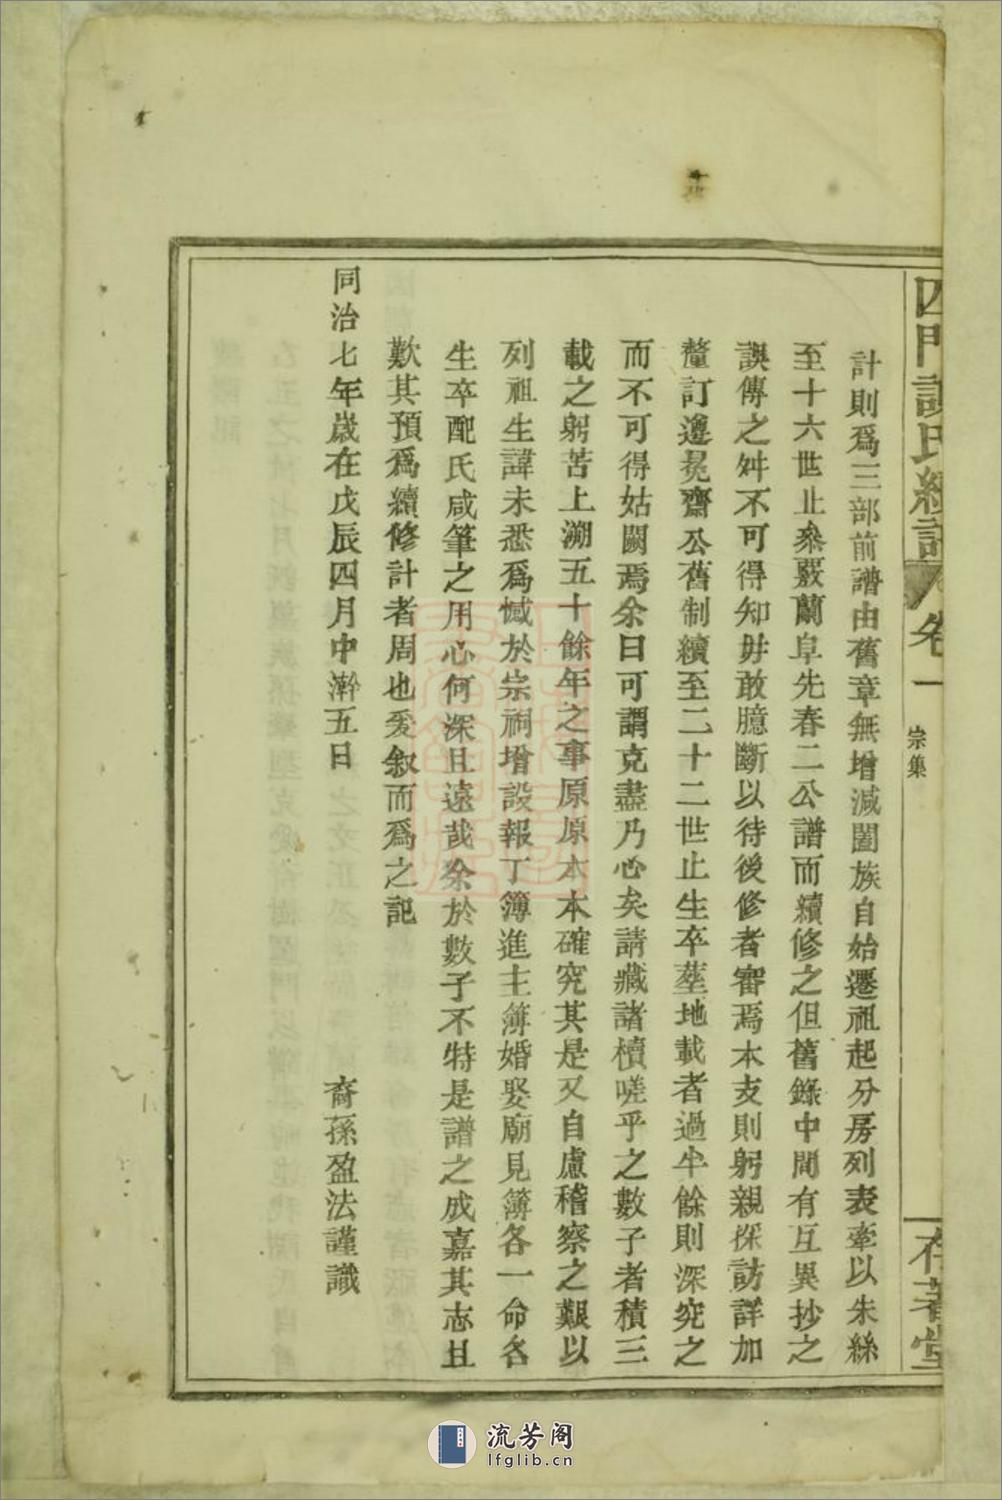 四門
氏續譜 卷一 宗集
存著堂
計則爲三部前譜由舊章無增減闔族自始遷祖起分房列表牽以朱絲
至十六世止叅覈蘭阜先春二公譜而續修之但舊錄中間有互異抄之
誤傳之舛不可得知毋敢臆斷以待後修者審焉本支則躬親探訪詳加
釐訂遵堯齋公舊制續至二十二世止生卒塟地載者過半餘則深究之
而不可得姑闕焉余曰可謂克盡乃心矣請藏諸櫝嗟乎之數子者積三
載之躬苦上溯五十餘年之事原原本本確究其是又自慮稽察之艱以
列祖生諱未悉爲憾於宗祠增設報丁簿進主簿婚娶廟見簿各一命各
生卒配氏咸筆之用心何深且遠哉余於數子不特是譜之成嘉其志且
歎其預爲續修計者周也爰叙而爲之記
同治七年歲在戊辰四月中澣五日
裔孫盈法謹識
流芳阁
lfglib.cn